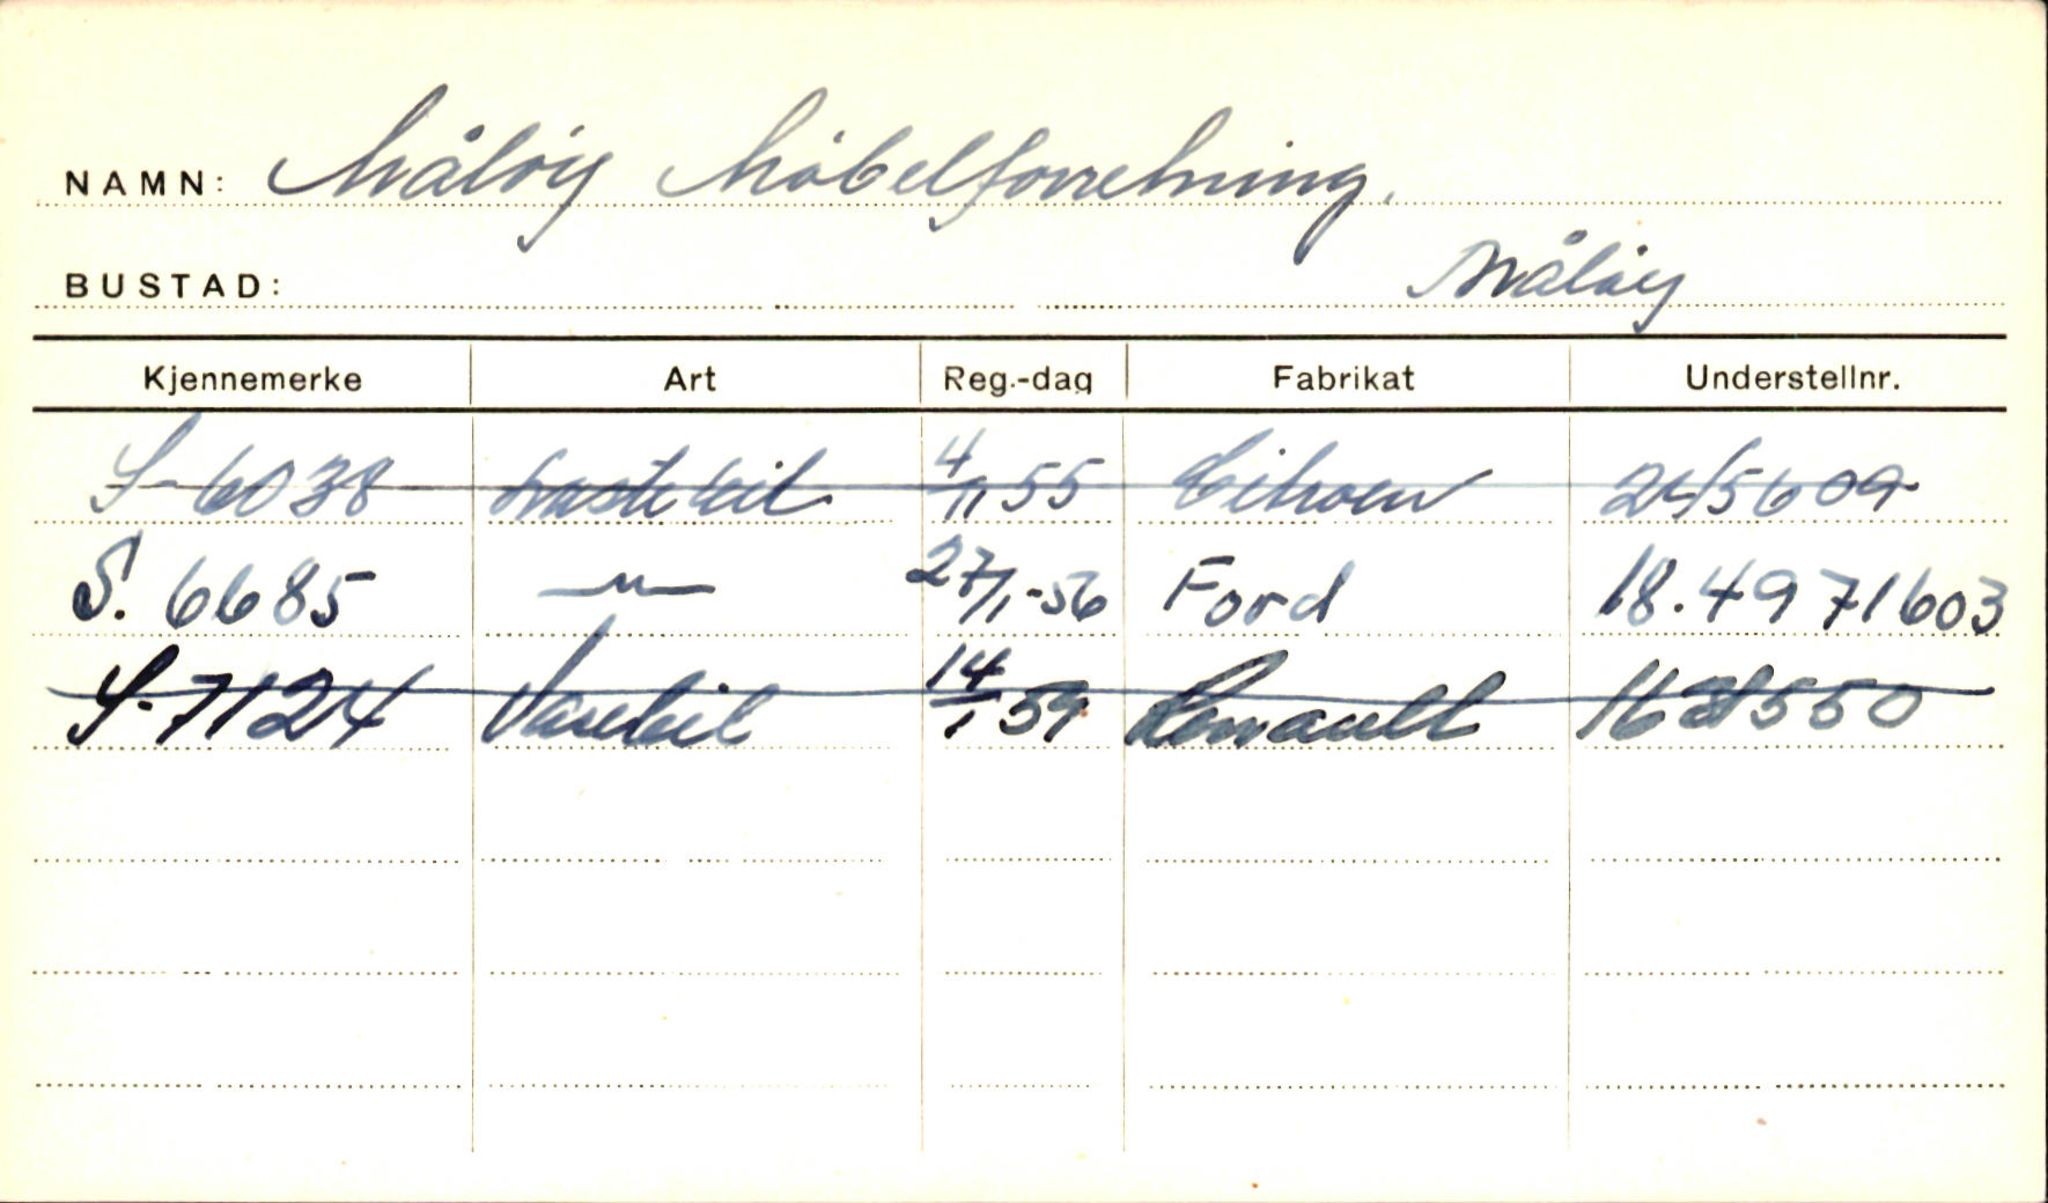 NAMN: Måløy Møbelforretning.
BUSTAD: Måløy
Kjennemerke Art Reg.-dag Fabrikat Understellnr.
S-6038 Lastebil 4/11 55 Citroen
S. 6685 —"— 27/1-56 Ford 18.4971603
S-7124 Varebil 14/1 59 Renault